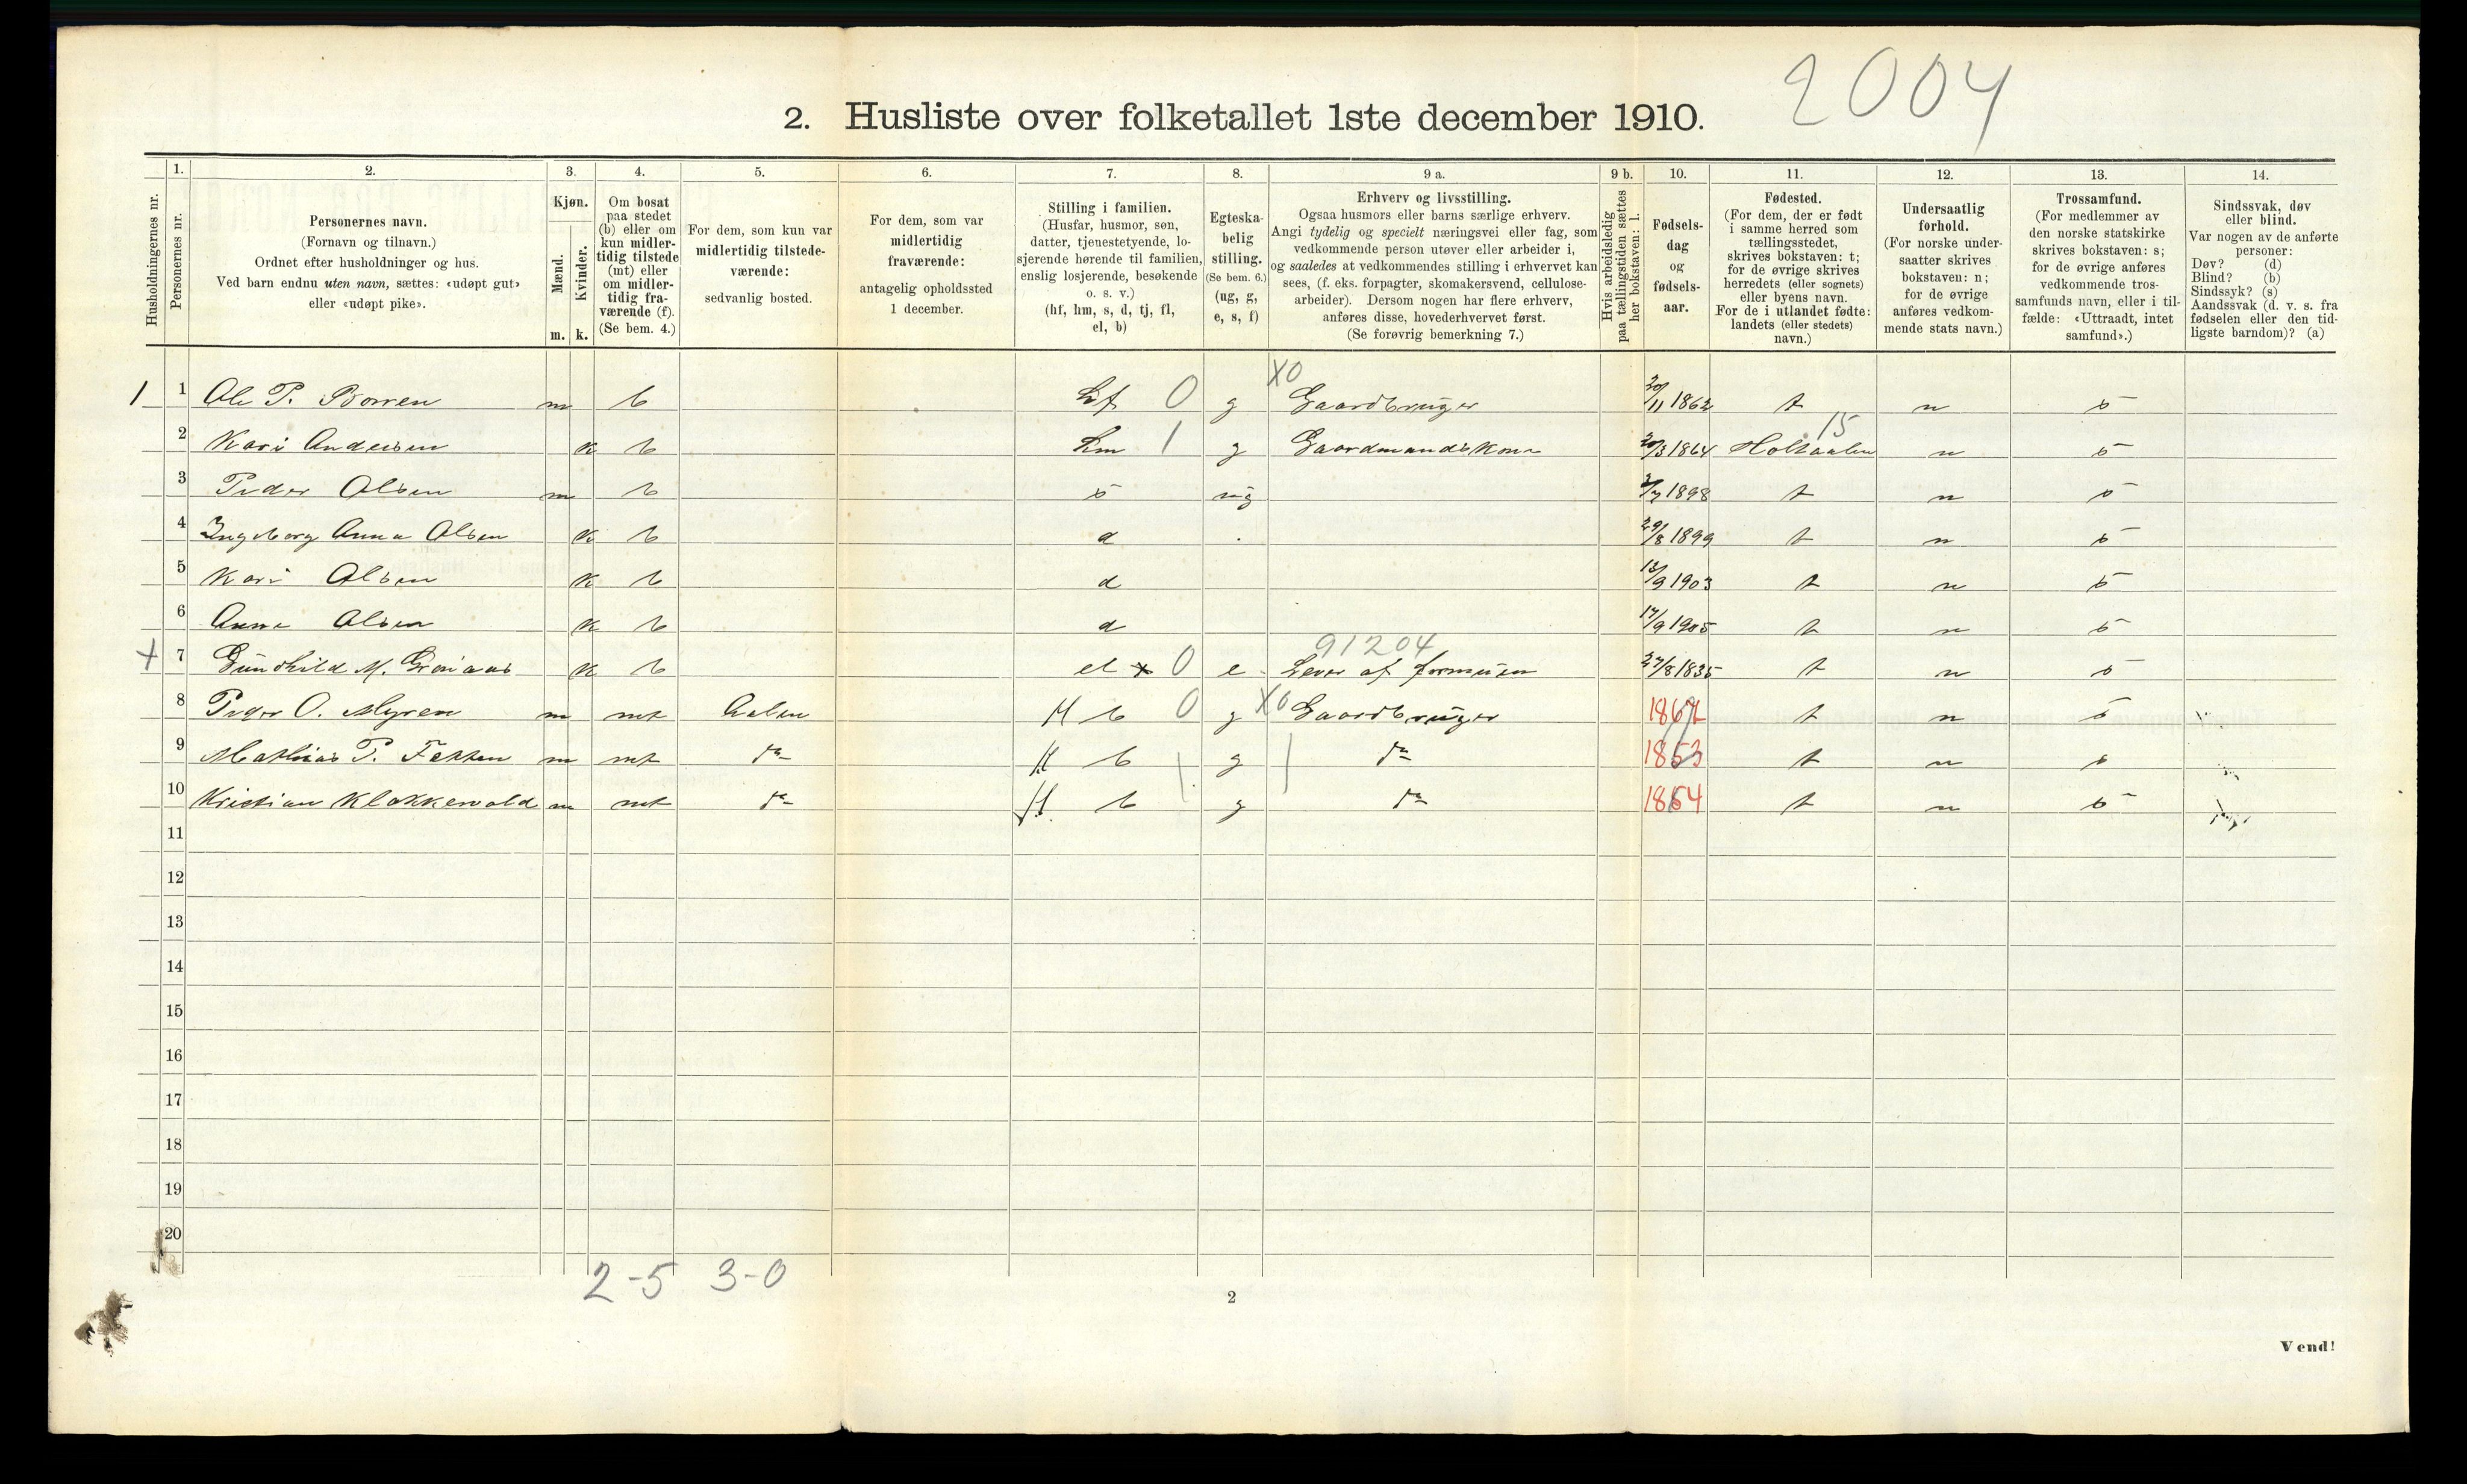 2004
2. Husliste over folketallet 1ste december 1910.
Husholdningernes nr.
1. Personernes nr.
2. Personernes navn. (Fornavn og tilnavn.) Ordnet efter husholdninger og hus. Ved barn endnu uten navn, sættes: «udøpt gut» eller «udøpt pike».
3. Kjøn. Mænd. m. Kvinder. k.
4. Om bosat paa stedet (b) eller om kun midlertidig tilstede (mt) eller om midlertidig fraværende (f). (Se bem. 4.)
5. For dem, som kun var midlertidig tilstedeværende: sedvanlig bosted.
6. For dem, som var midlertidig fraværende: antagelig opholdssted 1 december.
7. Stilling i familien. (Husfar, husmor, søn, datter, tjenestetyende, losjerende hørende til familien, enslig losjerende, besøkende o. s. v.) (hf, hm, s, d, tj, fl, el, b)
8. Egteskabelig stilling. (Se bem. 6.) (ug, g, e, s, f)
9 a. Erhverv og livsstilling. Ogsaa husmors eller barns særlige erhverv. Angi tydelig og specielt næringsvei eller fag, som vedkommende person utøver eller arbeider i, og saaledes at vedkommendes stilling i erhvervet kan sees, (f. eks. forpagter, skomakersvend, cellulosearbeider). Dersom nogen har flere erhverv, anføres disse, hovederhvervet først. (Se forøvrig bemerkning 7.)
9 b. Hvis arbeidsledig paa tællingstiden sættes her bokstaven: l.
10. Fødselsdag og fødselsaar.
11. Fødested. (For dem, der er født i samme herred som tællingsstedet, skrives bokstaven: t; for de øvrige skrives herredets (eller sognets) eller byens navn. For de i utlandet fødte: landets (eller stedets) navn.)
12. Undersaatlig forhold. (For norske undersaatter skrives bokstaven: n; for de øvrige anføres vedkommende stats navn.)
13. Trossamfund. (For medlemmer av den norske statskirke skrives bokstaven: s; for de øvrige anføres vedkommende trossamfunds navn, eller i tilfælde: «Uttraadt, intet samfund».)
14. Sindssvak, døv eller blind. Var nogen av de anførte personer: Døv? (d) Blind? (b) Sindssyk? (s) Aandssvak (d. v. s. fra fødselen eller den tidligste barndom)? (a)
1 1 Ole P. Borren m b hf 0 g X0 Gaardbruger 20/11 1862 t n s
2 Kari Andersen k b hm 1 g Gaardmandskone 20/3 1864 Holtaalen 15 n s
3 Peder Olsen m b s ug 1898 t n s
4 Ingeborg Anna Olsen k b d 29/8 1899 t n s
5 Kari Olsen k b d 13/9 1903 t n s
6 Anne Olsen k b d 17/9 1905 t n s
91204
X 7 Gundhild M. k b el x 0 e Lever af formuen 27/8 1835 t n s
8 Peder O. Myren m mt Aalen H b 0 g X0 Gaardbruger t n s
9 Mathias P. m mt do H b g do 1853 t n s
10 Kristian Klokkervold m mt do H b g do 1864 t n s
11
12
13
14
15
16
17
18
19
20
2-5 3-0
2
Vend!